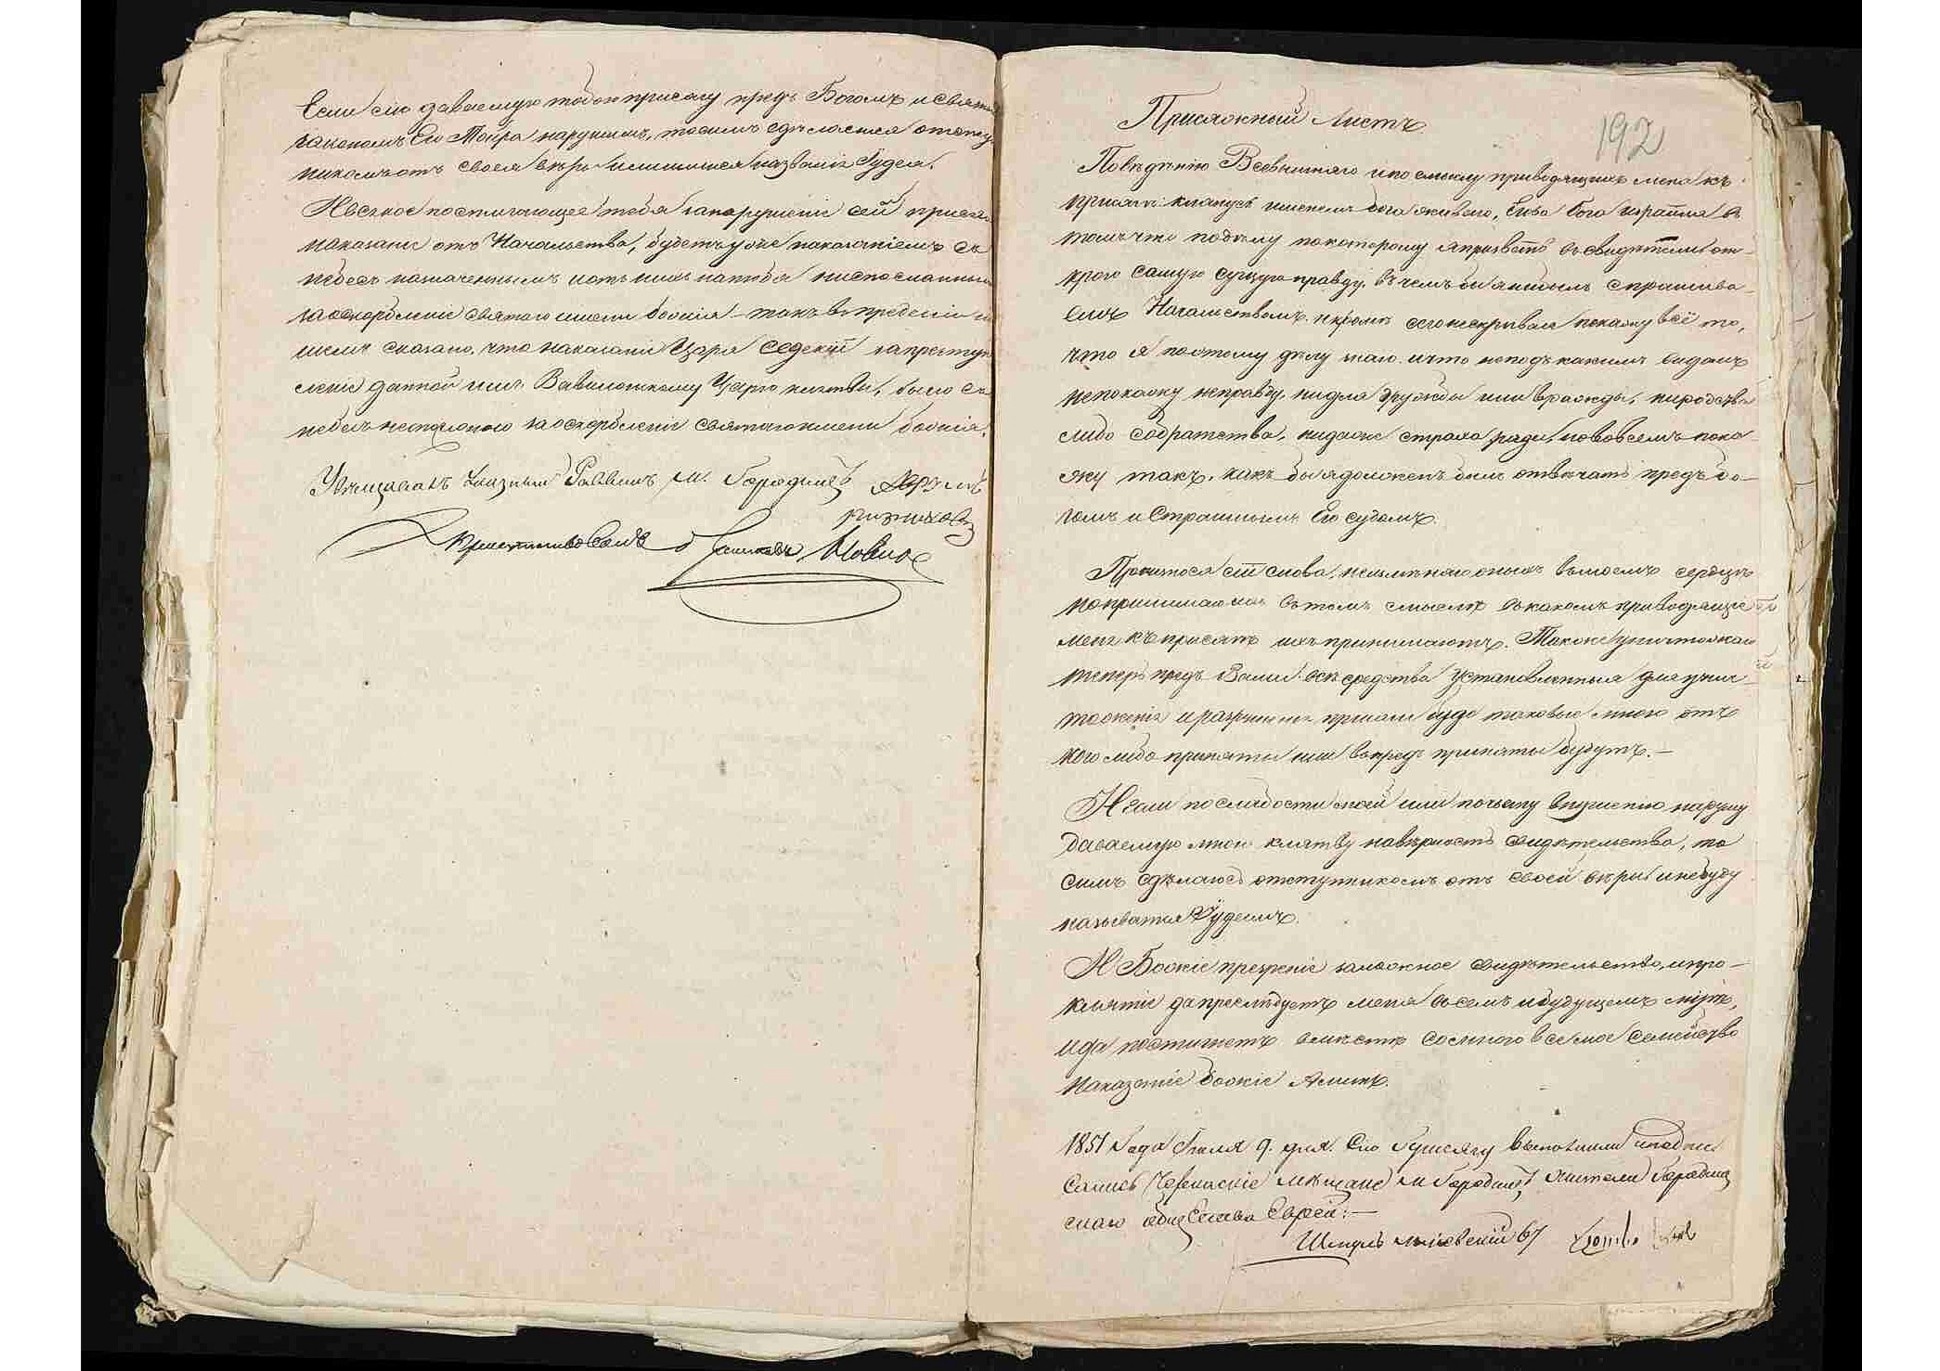 Если сію даваемую тобою присягу предъ Богомъ и святымъ
закономъ Его Тойра нарушишъ, то симъ сдѣлаешся отступ
никомъ отъ своея вѣры и лишишся названія Іудея.
И всякое постигающее тебя за нарушеніе сей присяги
наказаніе отъ Начальства, будетъ уже наказаніемъ съ
небесъ назначеннымъ и отъ нихъ на тебя ниспосланнымъ
за оскорбленіе святаго имени божія – такъ въ
нихъ сказано, что наказаніе Царя Седекіи за преступ
леніе данной имъ Вавилонскому Царю клятвы, было съ
небесъ ниспослано за оскорбленіе святаго имени божія.
Увѣщавалъ Казенный Раввинъ м. Городища
192
Присяжный Листъ
По вѣдѣнію Всевышняго и по смыслу приводящихъ меня къ
присягѣ клянусь именемъ бога живаго, бога израиля въ
томъ что по дѣлу по которому я призванъ въ свидѣтели от-
крою самую сущую правду, въ чемъ бы я ни былъ спрашива-
емъ Начальствомъ, и кромѣ сего не скрывая покажу всё то,
что я по этому дѣлу знаю и что не подъ какимъ видомъ
не покажу неправду, ни для дружбы или вражды, ни родства
либо собратства, ниже страха ради, но во всемъ пока-
жу такъ, какъ бы я долженъ былъ отвѣчать предъ бо-
гомъ и Страшнымъ Его судомъ.
Произнося сіи слова, не измѣняю оныхъ въ моемъ сердцѣ
но принимаю ихъ въ томъ смыслѣ въ какомъ приводящіе
меня къ присягѣ ихъ принимаютъ. Также уничтожаю
теперь предъ Вами всѣ средства установленныя для унич-
тоженія и разрѣшенія присяги буде таковые мною отъ
кого либо приняты или впредь приняты будутъ. –
И если по слабости моей или по чьему внушенію нарушу
даваемую мною клятву на вѣрность свидѣтельства, то
симъ сдѣлаюсь отступникомъ отъ своей вѣры и не буду
называтся Іудеемъ.
И Божіе презреніе за ложное свидѣтельство, и про-
клятіе да преслѣдуетъ меня въ семъ и будущемъ мірѣ,
и да постигнетъ вмѣстѣ со мною все мое семейство
наказаніе божіе Аминь.
1851 Года 9. дня. Сію Присягу выполнили и подпи
сались мѣщане м Городища жители Городищ
скаго общества Евреи: –
Шмуль